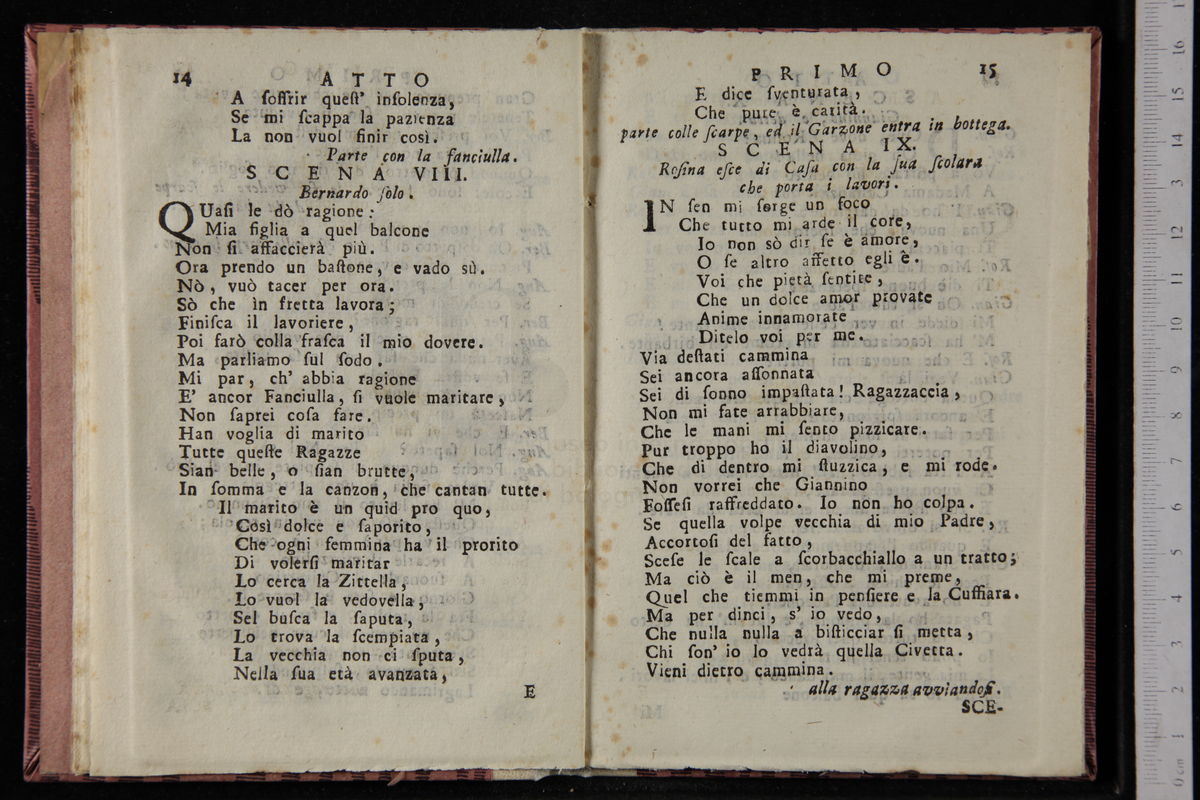 14 ATTO
A ſoffrir queſt' inſolenza,
Se mi ſcappa la pazienza
La non vuol finir così.
Parte con la fanciulla.
SCENA VIII.
Bernardo ſolo.
QUaſi le dò ragione:
Mia figlia a quel balcone
Non ſi affaccierà più.
Ora prendo un baſtone, e vado sù.
Nò, vuò tacer per ora.
Sò che in fretta lavora;
Finiſca il lavoriere,
Poi farò colla fraſca il mio dovere.
Ma parliamo ſul ſodo.
Mi par, ch' abbia ragione
E' ancor Fanciulla, ſi vuole maritare,
Non ſaprei coſa fare.
Han voglia di marito
Tutte queſte Ragazze
Sian belle, o ſian brutte,
In ſomma e la canzon, che cantan tutte.
Il marito è un quid pro quo,
Così dolce e ſaporito,
Che ogni femmina ha il prorito
Di volerſi maritar
Lo cerca la Zittella,
Lo vuol la vedovella,
Sel buſca la ſaputa,
Lo trova la ſcempiata,
La vecchia non ci ſputa,
Nella ſua età avanzata,
E
PRIMO 15
E dice ſventurata,
Che pure è carità.
parte colle ſcarpe, ed il Garzone entra in bottega.
SCENA IX.
Roſina eſce di Caſa con la ſua ſcolara
che porta i lavori.
IN ſen mi ſorge un foco
Che tutto mi arde il core,
Io non sò dir ſe è amore,
O ſe altro affetto egli è.
Voi che pietà ſentite,
Che un dolce amor provate
Anime innamorate
Ditelo voi per me.
Via deſtati cammina
Sei ancora aſſonnata
Sei di ſonno impaſtata! Ragazzaccia,
Non mi fate arrabbiare,
Che le mani mi ſento pizzicare.
Pur troppo ho il diavolino,
Che di dentro mi ſtuzzica, e mi rode.
Non vorrei che Giannino
Foſſeſi raffreddato. Io non ho colpa.
Se quella volpe vecchia di mio Padre,
Accortoſi del fatto,
Sceſe le ſcale a ſcorbacchiallo a un tratto;
Ma ciò è il men, che mi preme,
Quel che tiemmi in penſiere e la Cuffiara.
Ma per dinci, s' io vedo,
Che nulla nulla a biſticciar ſi metta,
Chi ſon' io lo vedrà quella Civetta.
Vieni dietro cammina.
alla ragazza avviandoſi.
SCE-